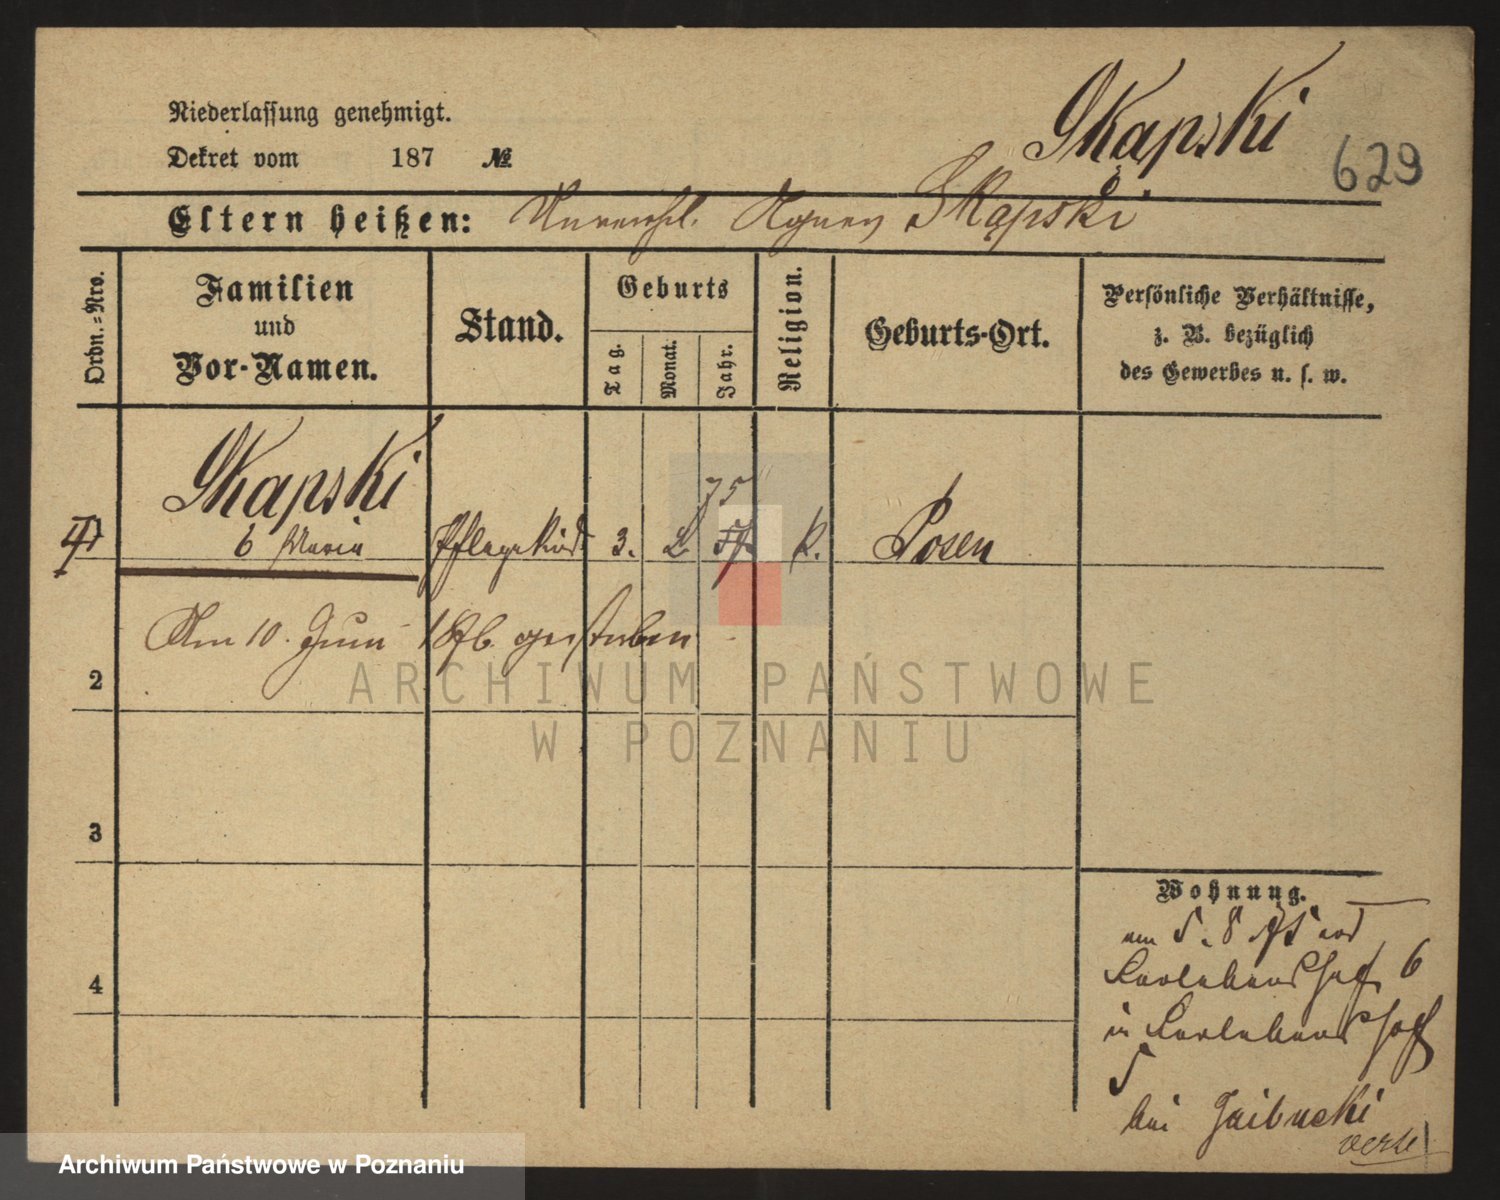 Niederlassung genehmigt.
Dekret vom 187 №
Skąpski
629
Eltern heißen: Unverehel. Agnes Skąpski
Ordn.-Nro.
Familien und Vor-Namen.
Stand.
Geburts
Tag.
Monat.
Jahr.
Religion.
Geburts-Ort.
Persönliche Verhältnisse,
z. B. bezüglich
des Gewerbes u. s. w.
Skąpski
75
Maria Pflegekind 3. 2. K. Posen
Am 10. Juni 1876 gestorben
2
3
4
Wohnung.
5. 8. 75
6
in
5
bei
verte
ARCHIWUM PAŃSTWOWE
W POZNANIU
Archiwum Państwowe w Poznaniu